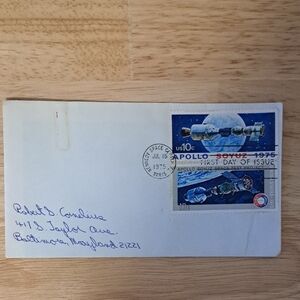 US10c
APOLLO SOYUZ 1975
FIRST DAY OF ISSUE
KENNEDY SPACE CENTER
JUL 15
1975
APOLLO SOYUZ SPACE TEST PROJECT
Robert D. Cornelius
417 S. Taylor Ave.
Baltimore, Maryland 21221